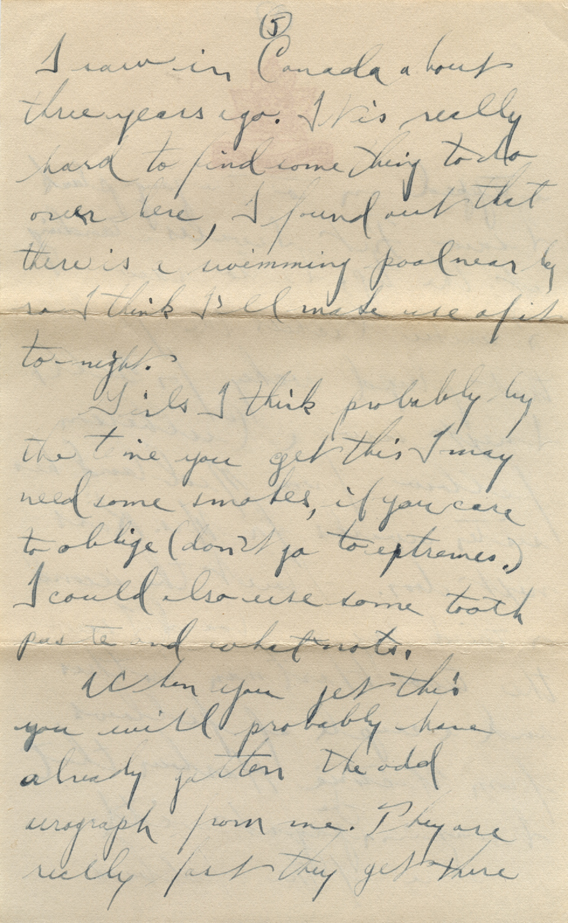 (5)
I saw in Canada about
three years ago. It is really
hard to find some thing to do
over here, I found out that
there is a swimming pool near by
so I think I'll make use of it
to-night.
Girls I think probably by
the time you get this I may
need some smokes, if you care
to oblige (don't go to extremes.)
I could also use some tooth
paste and what nots.
When you get this
you will probably have
already gotten the odd
airograph from me. They are
really fast they get there